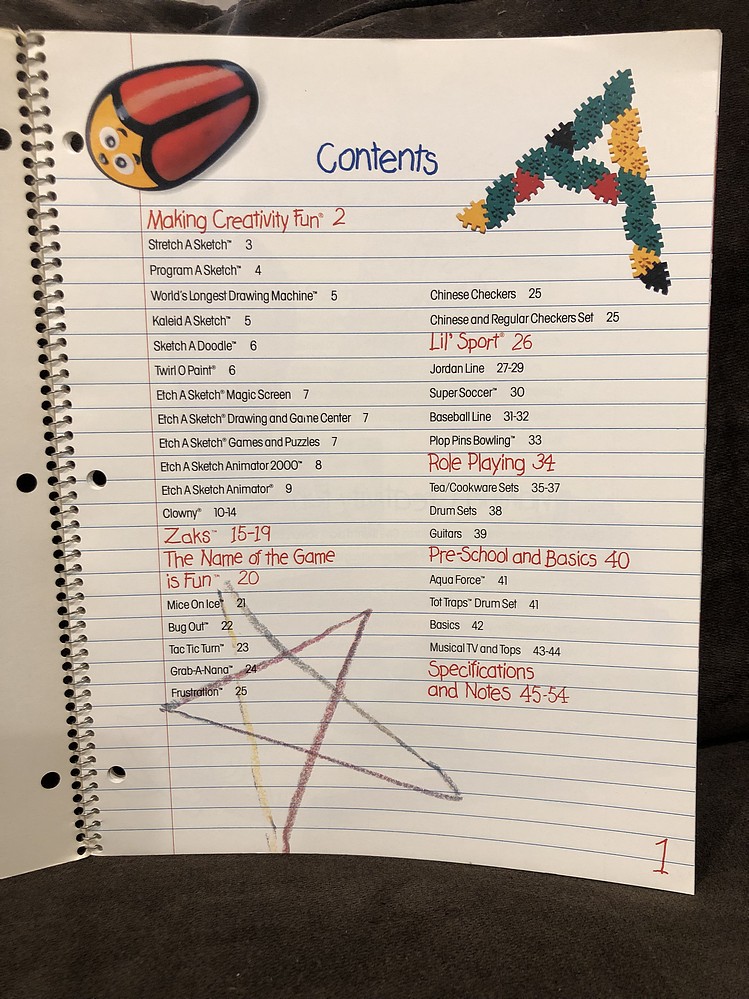 Contents
Making Creativity Fun® 2
Stretch A Sketch™ 3
Program A Sketch™ 4
World's Longest Drawing Machine™ 5
Kaleid A Sketch™ 5
Sketch A Doodle™ 6
Twirl O Paint® 6
Etch A Sketch® Magic Screen 7
Etch A Sketch® Drawing and Game Center 7
Etch A Sketch® Games and Puzzles 7
Etch A Sketch Animator 2000™ 8
Etch A Sketch Animator® 9
Clowny® 10-14
Zaks™ 15-19
The Name of the Game
is Fun™ 20
Mice On Ice™ 21
Bug Out™ 22
Tac Tic Turn™ 23
Grab-A-Nana™ 24
Frustration™ 25
Chinese Checkers 25
Chinese and Regular Checkers Set 25
Lil' Sport® 26
Jordan Line 27-29
Super Soccer™ 30
Baseball Line 31-32
Plop Pins Bowling™ 33
Role Playing 34
Tea/Cookware Sets 35-37
Drum Sets 38
Guitars 39
Pre-School and Basics 40
Aqua Force™ 41
Tot Traps™ Drum Set 41
Basics 42
Musical TV and Tops 43-44
Specifications
and Notes 45-54
1